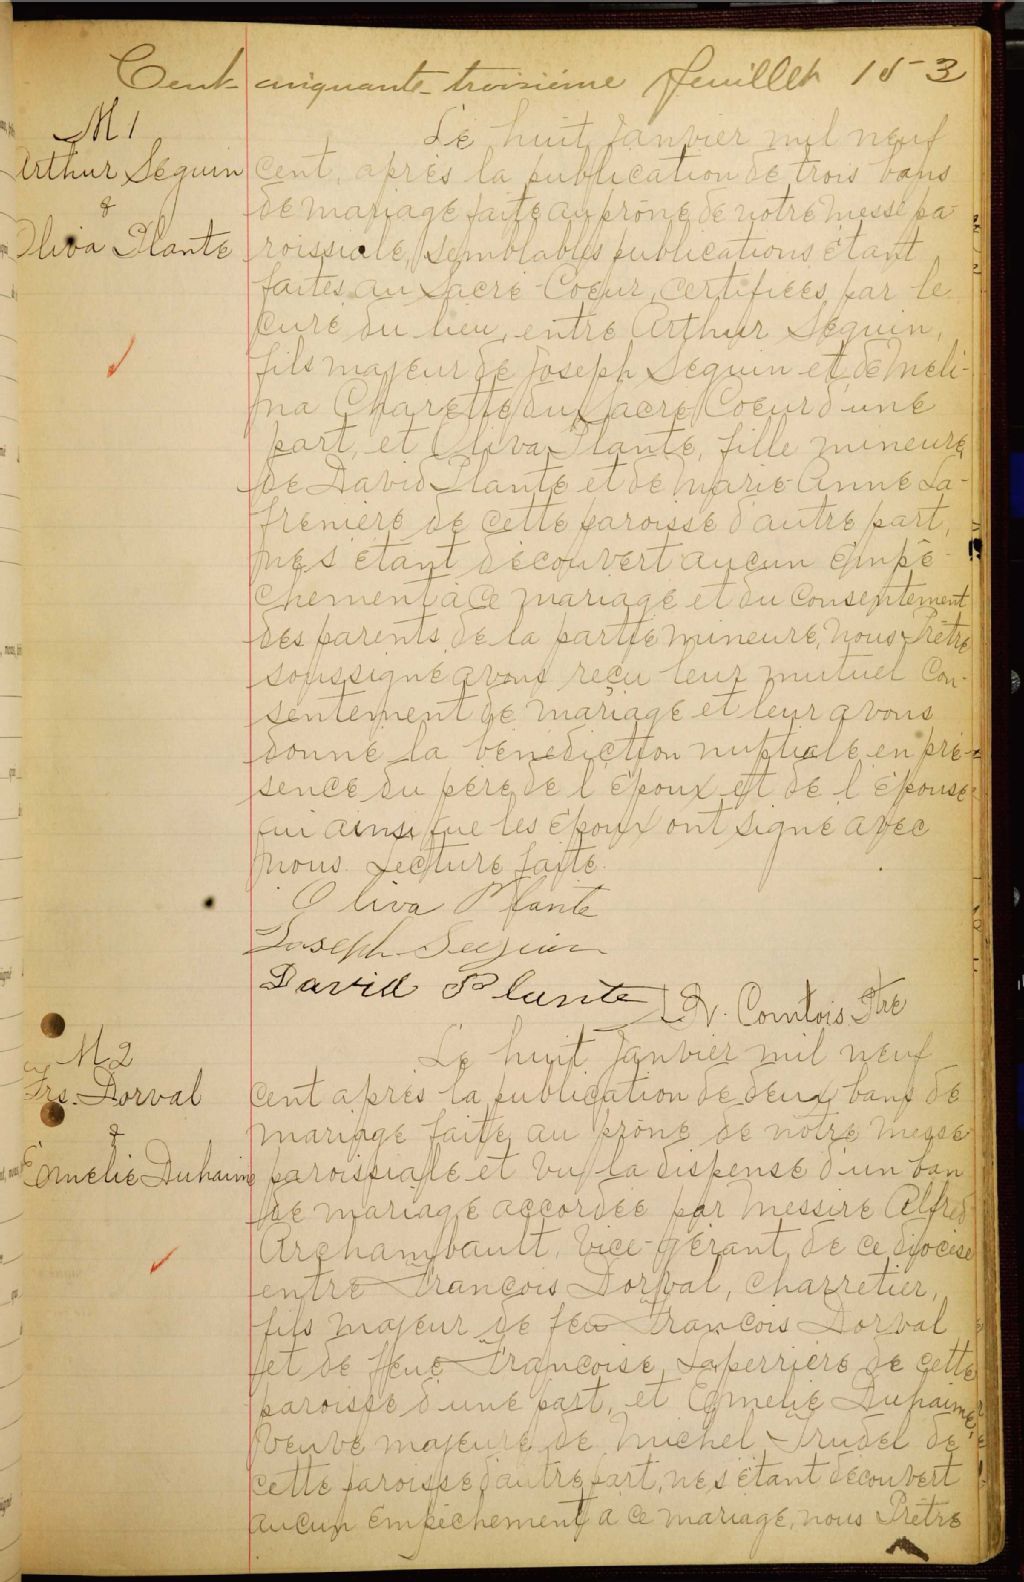 Cent cinquante-troisième feuillet 153
M 1
Arthur Séguin
&
Oliva Plante
Le huit Janvier mil neuf
cent, après la publication de trois bans
de mariage faite au prône de notre messe pa-
roissiale, semblables publications étant
faites au Sacré-Coeur, certifiées par le
curé du lieu, entre Arthur Séguin,
fils majeur de Joseph Séguin et de Méli-
na Charette du Sacré Coeur d'une
part, et Oliva Plante, fille mineure
de David Plante et de Marie-Anne La-
frenière de cette paroisse d'autre part,
ne s'étant découvert aucun empê-
chement à ce mariage et du consentement
des parents de la partie mineure, nous Prêtre
soussigné avons reçu leur mutuel con-
sentement de mariage et leur avons
donné la bénédiction nuptiale en pré-
sence du père de l'époux et de l'épouse
qui ainsi que les époux ont signé avec
nous. Lecture faite.
Oliva Plante
Joseph Seguin
David Plante
Comtois Ptre
M 2
Frs. Dorval
&
Emélie Duhaime
Le huit Janvier mil neuf
cent après la publication de deux bans de
mariage faite au prône de notre messe
paroissiale et vu la dispense d'un ban
de mariage accordée par Messire Alfred
Archambault, Vice-gérant de ce diocèse
entre François Dorval, charretier,
fils majeur de feu François Dorval
et de feue Françoise Laperrière de cette
paroisse d'une part, et Emélie Duhaime,
veuve majeure de Michel Trudel de
cette paroisse d'autre part, ne s'étant découvert
aucun empêchement à ce mariage, nous Prêtre